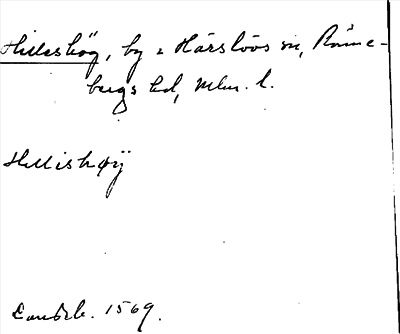 Hilleshög, by i Härslövs sn, Rönne-
bergs hd, Mlm. l.
Hillishøÿ
Landeb. 1569.